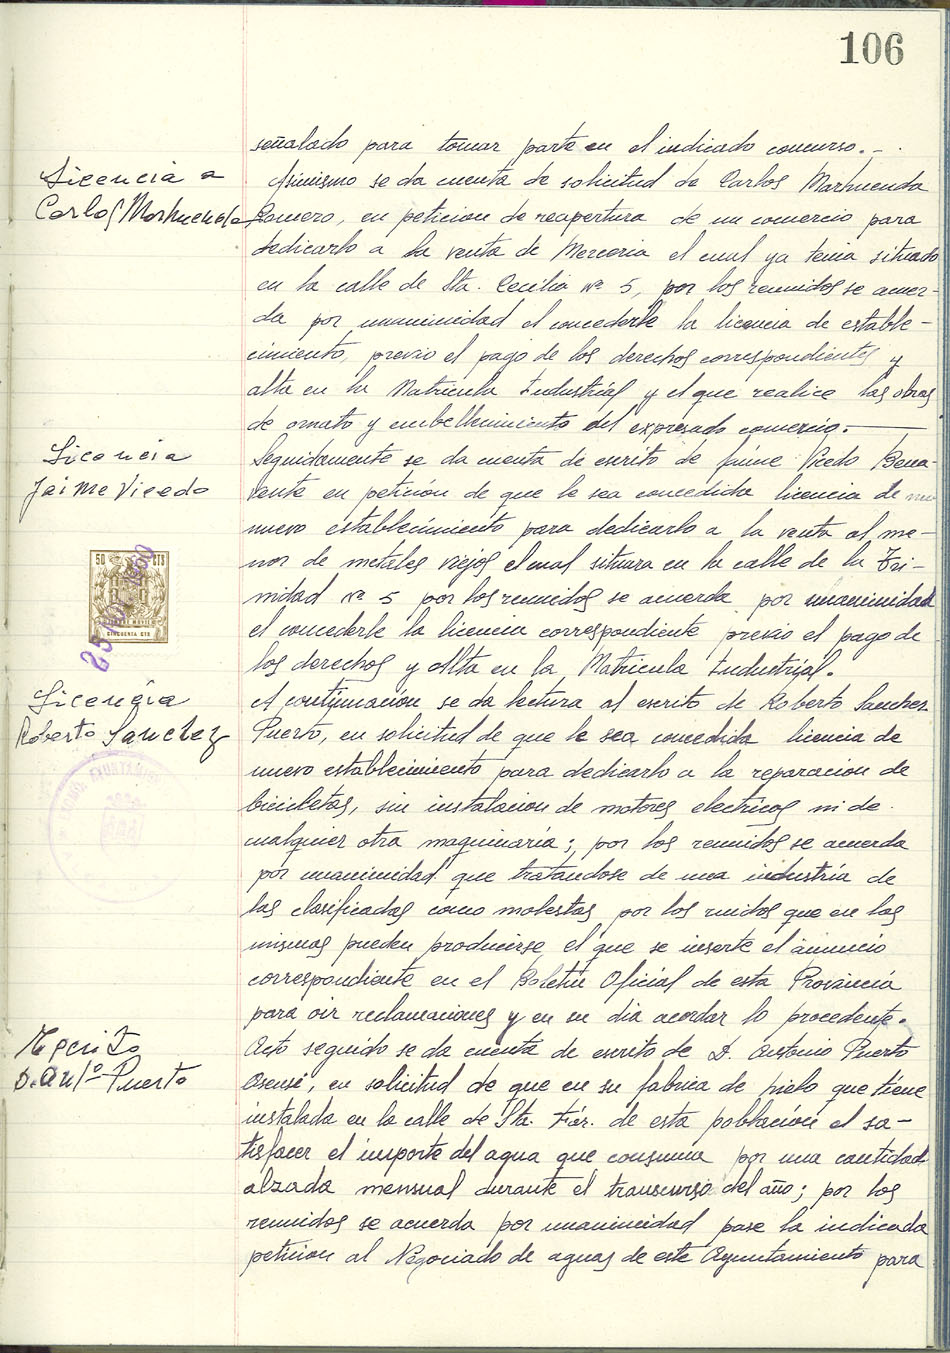 106
señalado para tomar parte en el indicado concurso.-.
Licencia a
Carlos Marhuenda
Asimismo se da cuenta de solicitud de Carlos Marhuenda
Romero, en peticion de reapertura de un comercio para
dedicarlo a la venta de Merceria el cual ya tenia situado
en la calle de Sta. Cecilia nº 5, por los reunidos se acuer-
da por unanimidad el concederle la licencia de estable-
cimiento, previo el pago de los derechos correspondientes y
alta en la Matricula Industrial y el que realice las obras
de ornato y embellecimiento del expresado comercio.
Licencia
Jaime Vicedo
Seguidamente se da cuenta de escrito de Jaime Vicedo Bena-
vente en petición de que le sea concedida licencia de
nuevo establecimiento para dedicarlo a la venta al me-
nor de metales viejos el cual situara en la calle de la Tri-
nidad nº 5 por los reunidos se acuerda por unanimidad
el concederle la licencia correspondiente previo el pago de
los derechos y Alta en la Matricula Industrial.
50 CTS
CINCUENTA CTS
Licencia
Roberto Sanchez
A continuación se da lectura al escrito de Roberto Sanchez
Puerto, en solicitud de que le sea concedida licencia de
nuevo establecimiento para dedicarlo a la reparacion de
bicicletas, sin instalacion de motores electricos ni de
cualquier otra maquinaria; por los reunidos se acuerda
por unanimidad que tratandose de una industria de
las clasificadas como molestas por los ruidos que en las
mismas pueden producirse, el que se inserte el anuncio
correspondiente en el Boletin Oficial de esta Provincia
para oir reclamaciones y en su dia acordar lo procedente.
AYUNTAMIENTO
Escrito
D. Antº Puerto
Acto seguido se da cuenta de escrito de D. Antonio Puerto
Asensi, en solicitud de que en su fabrica de hielo que tiene
instalada en la calle de Sta. de esta población el sa-
tisfacer el importe del agua que consuma por una cantidad
alzada mensual durante el transcurso del año; por los
reunidos se acuerda por unanimidad pase la indicada
peticion al Negociado de aguas de este Ayuntamiento para